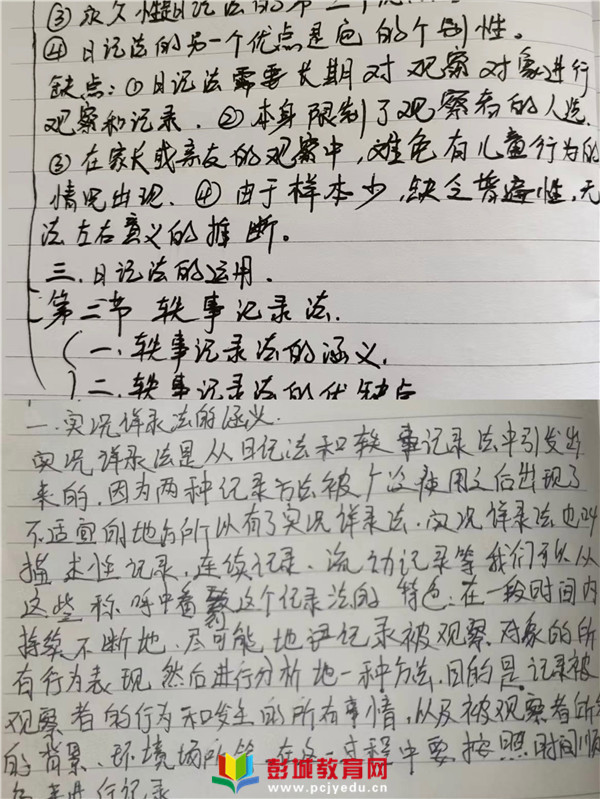 ③永久性是日记法的第二个优
④日记法的另一个优点是它的个别性。
缺点:①日记法需要长期对观察对象进行
观察和记录.②本身限制了观察者的人选.
③在家长或亲友的观察中,难免有儿童行为的
情况出现.④由于样本少,缺乏普遍性,无
法左右意义的推断。
三.日记法的运用.
第二节 轶事记录法.
一.轶事记录法的涵义.
二.轶事记录法的优缺点
一.实况详录法的涵义.
实况详录法是从日记法和轶事记录法中引发出
来的,因为两种记录方法被广泛使用之后出现了
不适宜的地方所以有了实况详录法.实况详录法也叫
描述性记录,连续记录、流动记录等我们可以从
这些称呼中看这个记录法的特色:在一段时间内
持续不断地,尽可能地记录被观察对象的所
有行为表现,然后进行分析地一种方法.目的是记录被
观察者的行为和发生的所有事情,以及被观察者所
的背景、环境场所等.在这一过程中要按照时间顺
来进行记录
彭城教育网
www.pcjyedu.cn